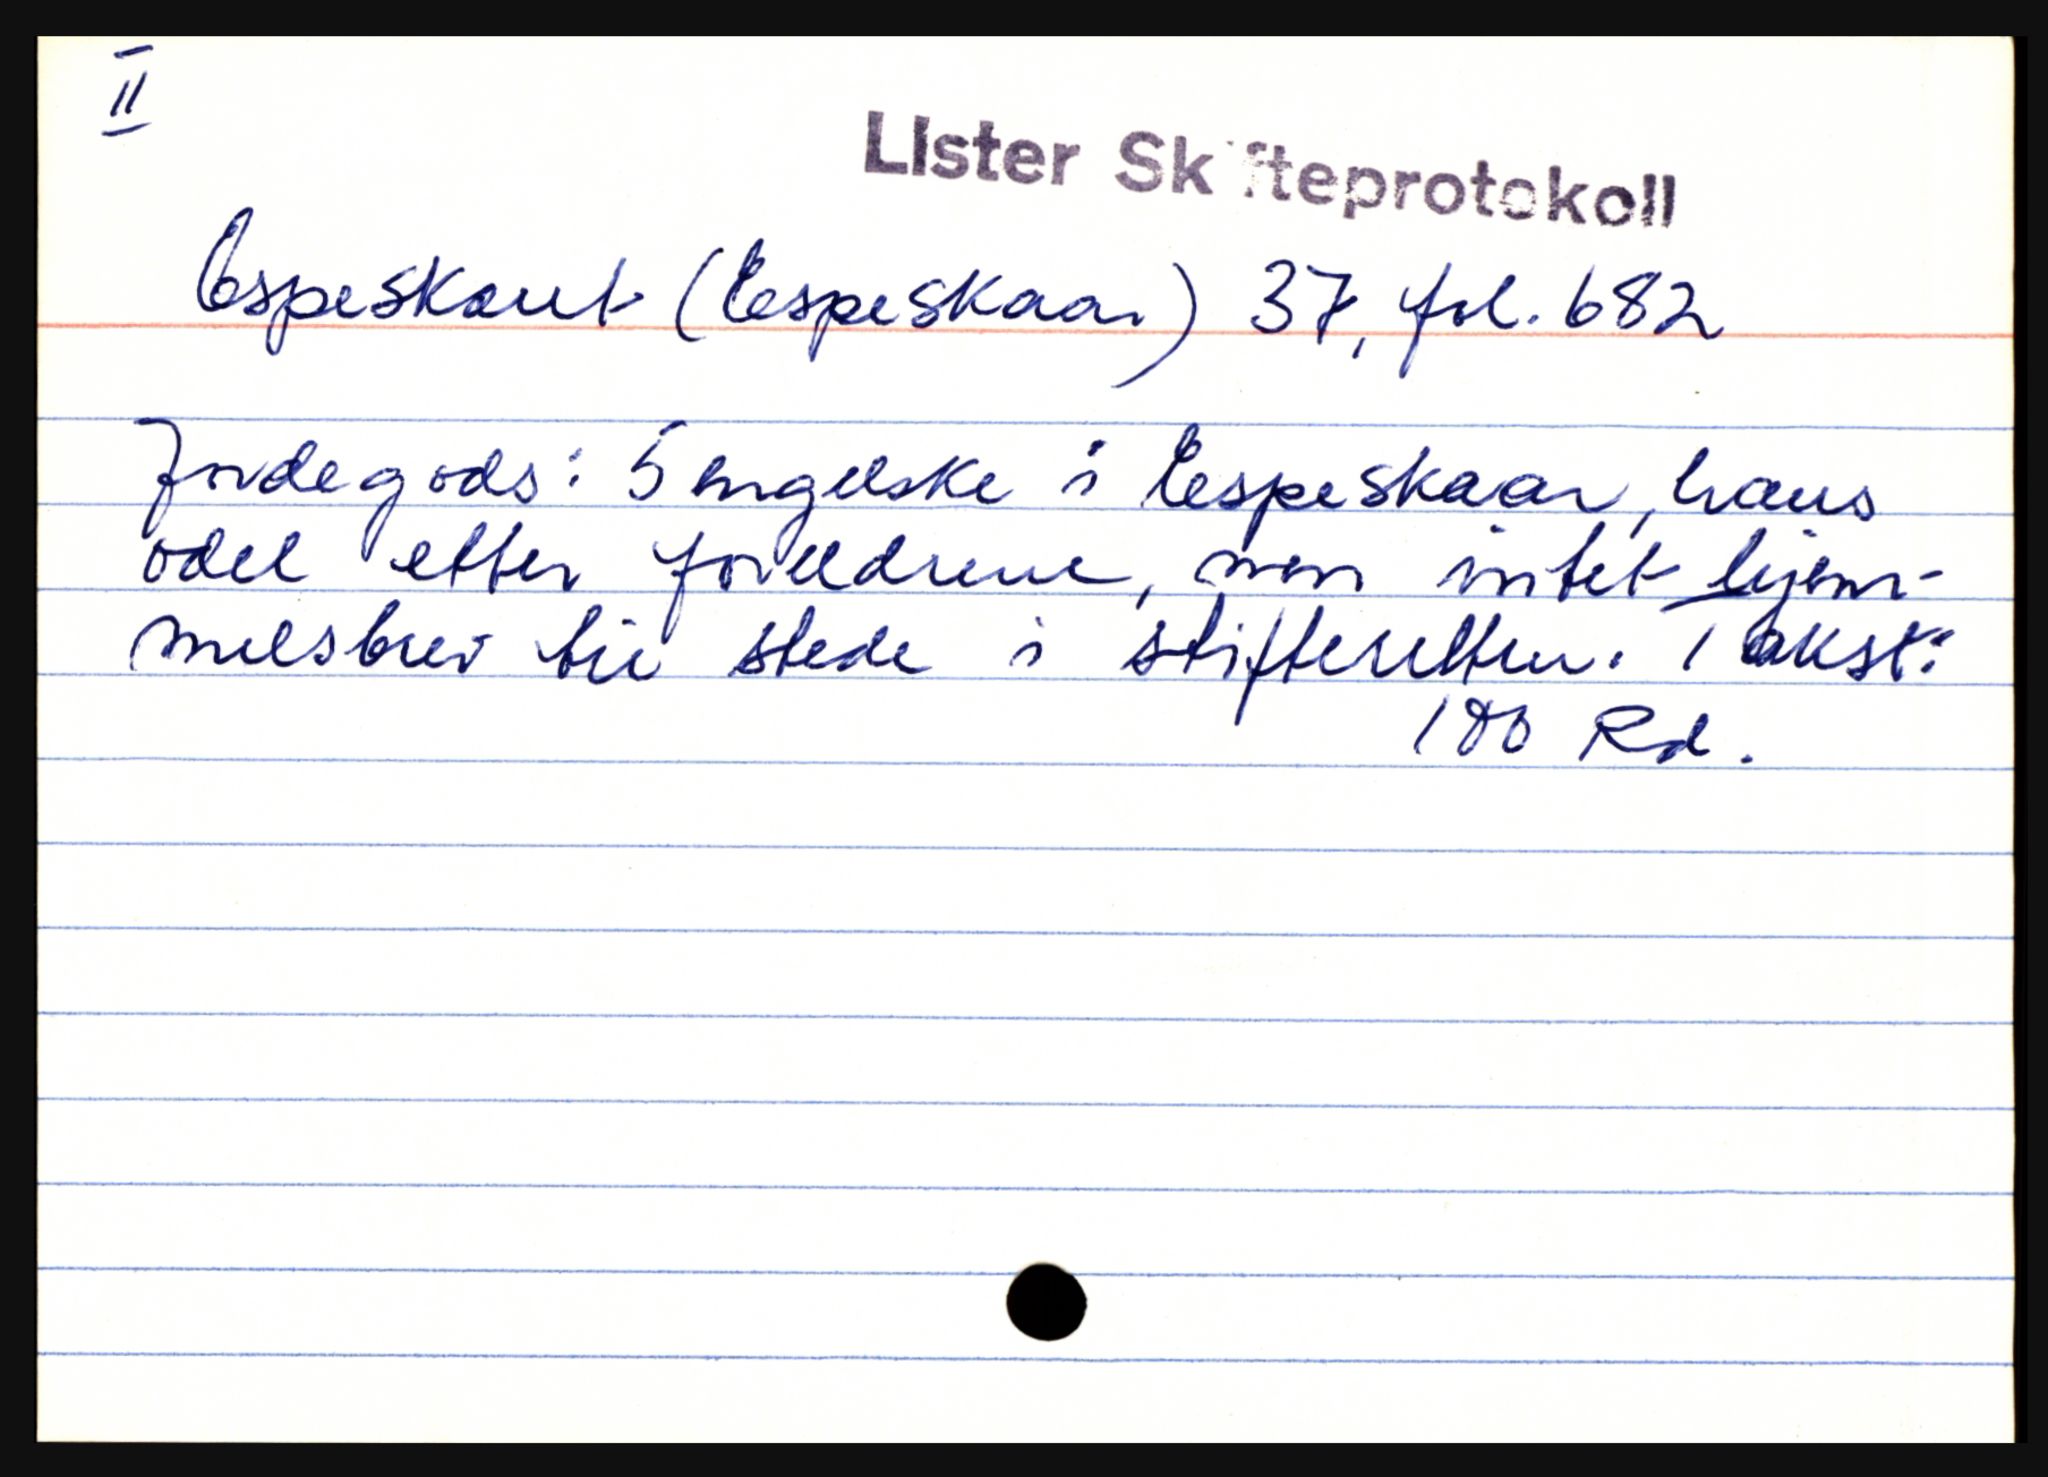 II
LIster Skifteprotokoll
Espeskaut (Espeskaar) 37, fol. 682
Jordegods: 5 engelske i Espeskaar, hans
odel etter foreldrene, men intet hjem-
melsbrev til stede i skifteretten. Takst:
100 Rd.